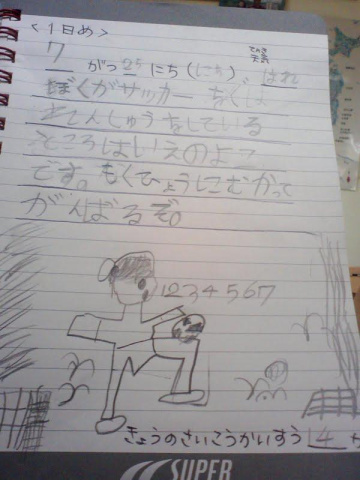 <1日め>
7 がつ 25 にち (にち) はれ
ぼくがサッカー
きてんしゅうをしている
ところはいえのよこ
です。もくひょうにむかって
がんばるぞ。
1234567
きょうのさいこうかいすう 14
SUPER